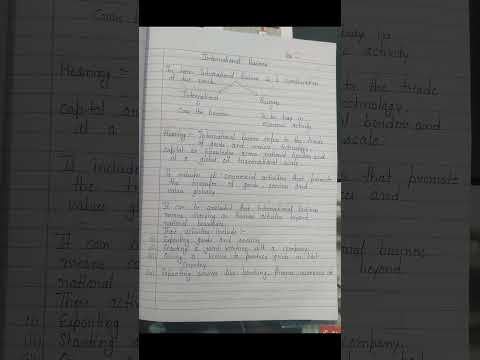 International Business
The term International Business is a combination
of two words
International
Business
Cross the Borders
To be busy in
economic activity
Meaning :- International business refers to the trade
of goods and services, technology,
capital or knowledge across national borders and
at a global or transnational scale
It includes all commercial activities that promote
the transfer of goods, services and
values globally
It can be concluded that International business
means carrying on business activities beyond
national boundaries
These activities include :-
(i) Exporting goods and services
(ii) Starting a joint venture with a company
(iii) a license to produce goods in host
Country
(iv) Exporting services like banking, finance, insurance etc